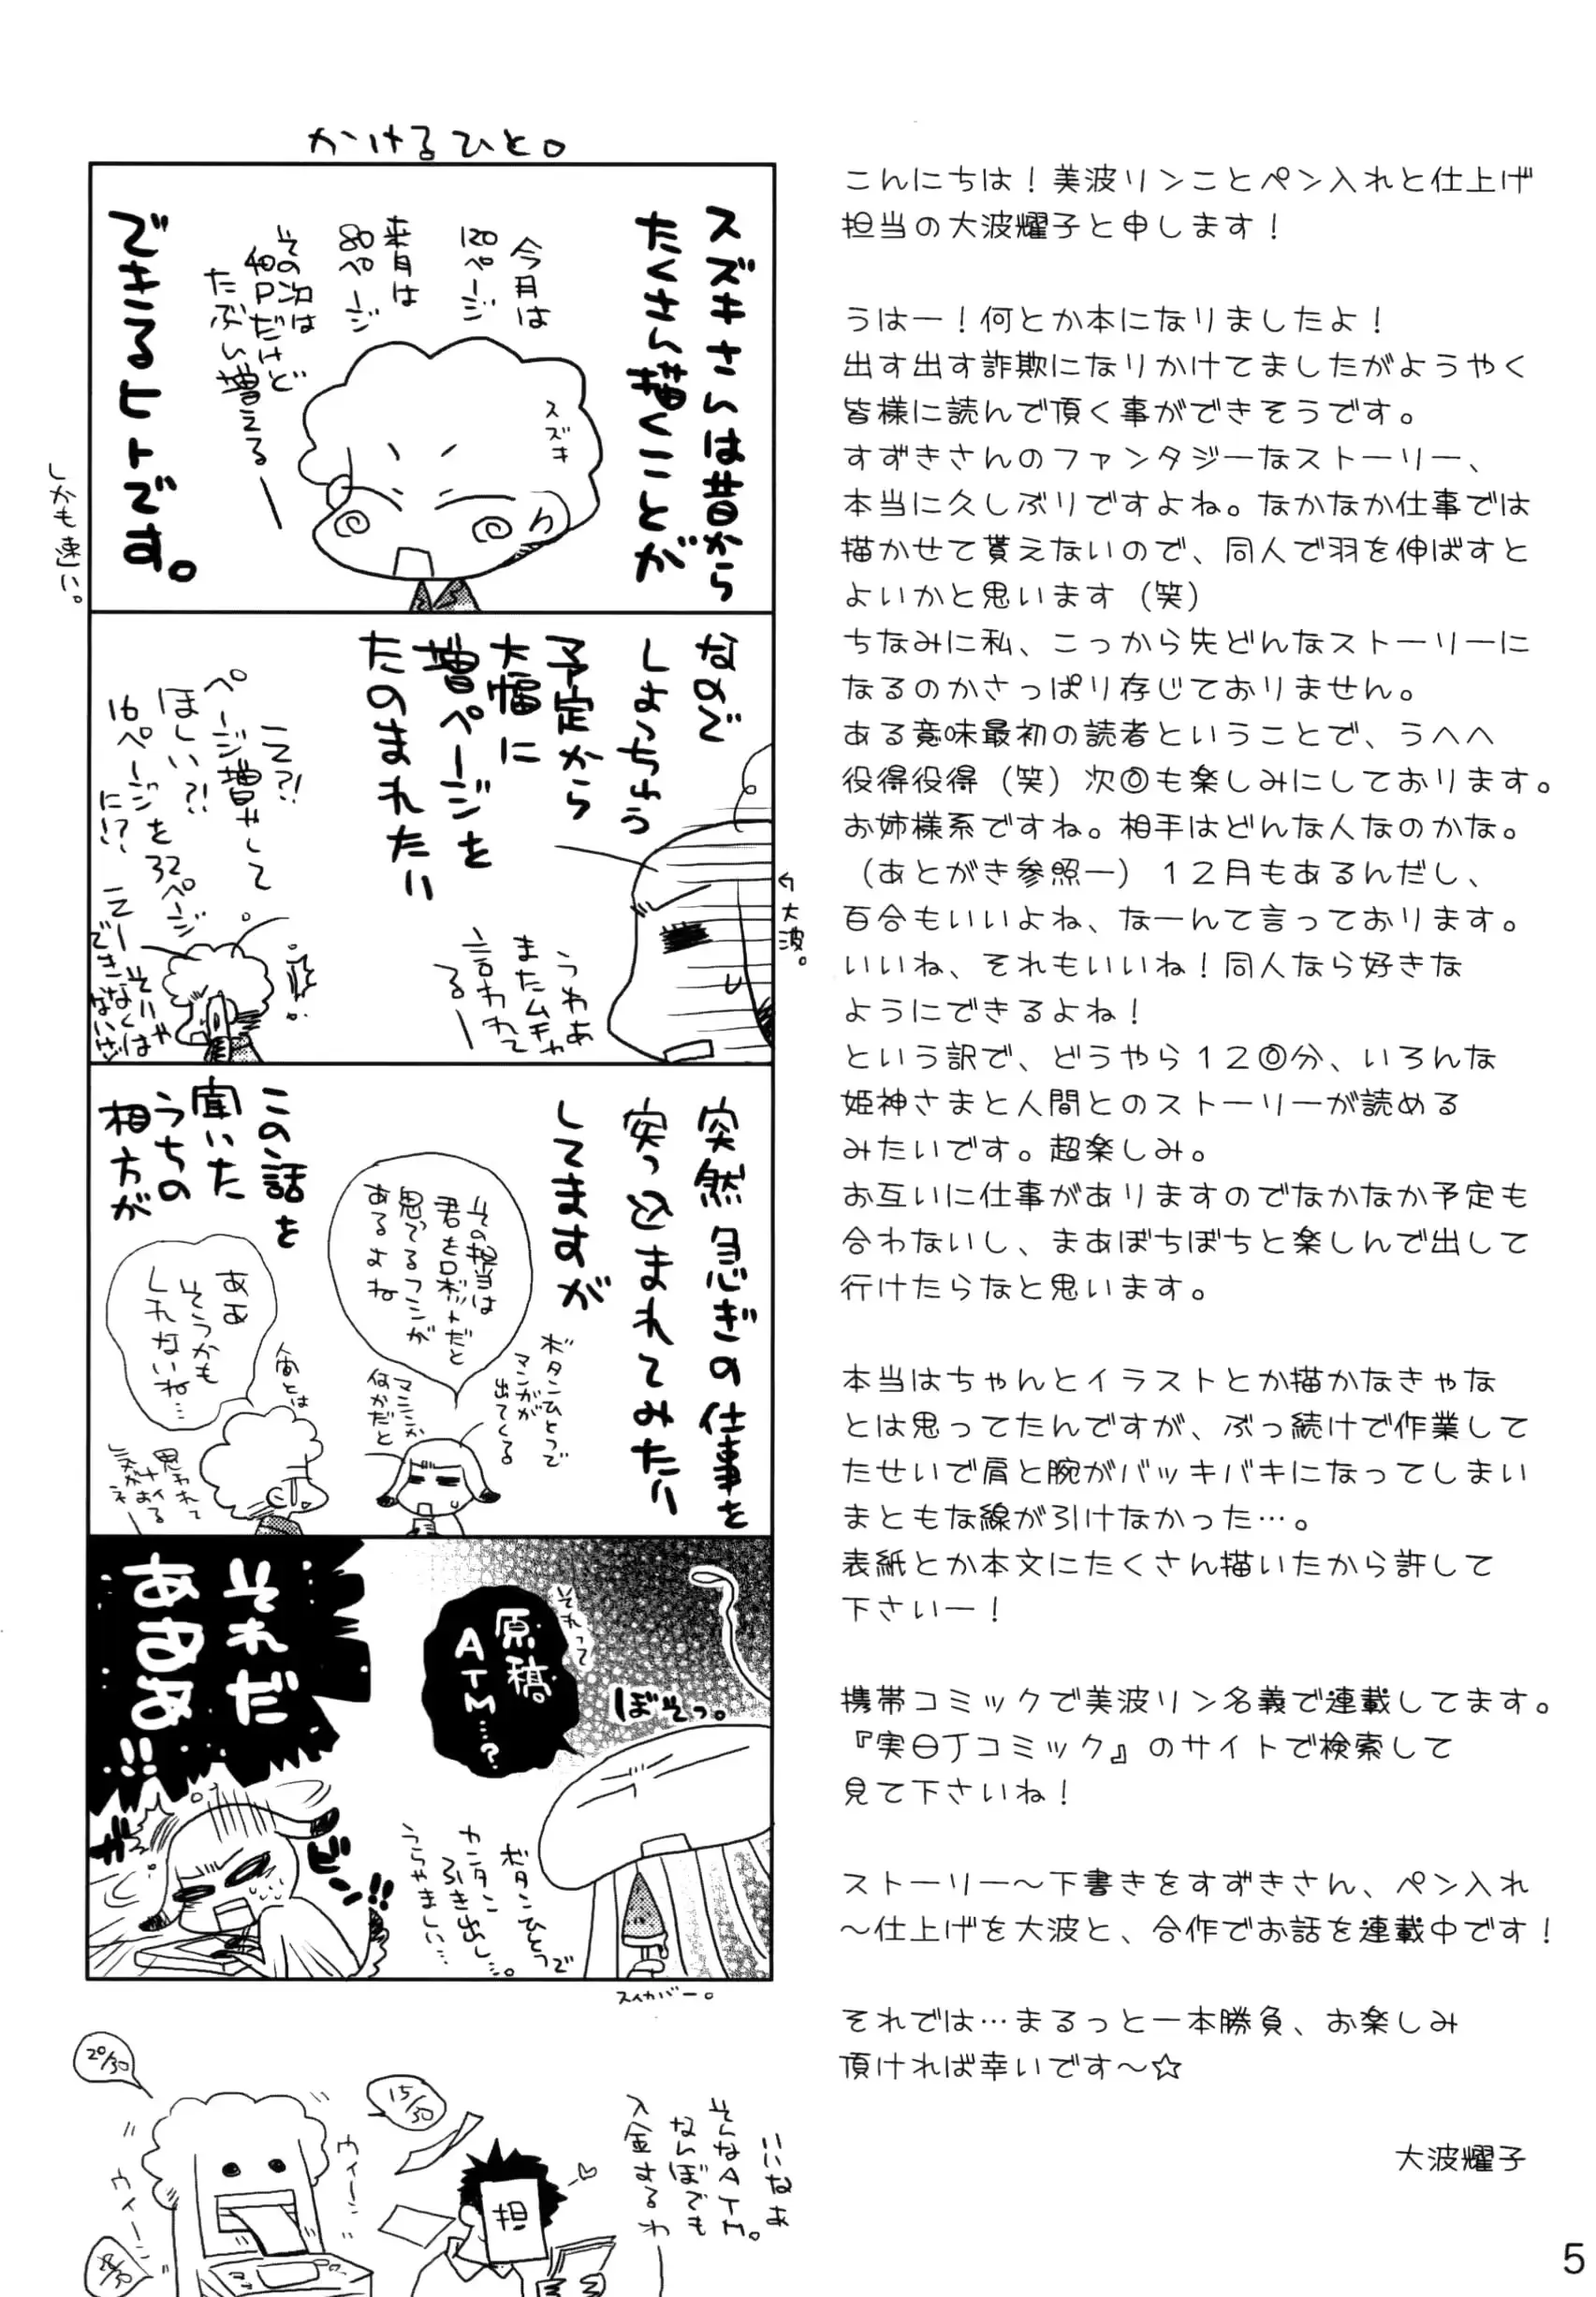 かけるひと。
スズキさんは昔から
たくさん描くことが
できるヒトです。
今月は
120ページ
来月は
80ページ
その次は
40Pだけど
たぶん増える
スズキ
しかも速い。
なので
しょっちゅう
予定から
大幅に
増ページを
たのまれたり
うわあ
またムチャ
言われて
る
↰大波。
えっ?!
ページ増やして
ほしい?!
16ページを32ページ
に!?
突然急ぎの仕事を
突っこまれてみたり
してますが
その担当は
君をロボットだと
思ってるフシが
あるよね
ボタンひとつで
マンガが
出てくる
マシンか
何かだと
この話を
聞いた
うちの
相方が
ああ
そうかも
しれないね…
人間とは
思われて
ナイ
気がする
ネ
それって
原稿
ATM…?
ぼそっ。
それだ
あああ!!
ガ
ビーン!!
ボタンひとつで
カンタン
ふき出し…。
うらやましい…
スイカバー。
20/30
15/30
ウィーン
ウィーン
担
いいなぁ
そんなATM。
なんぼでも
入金するわ
こんにちは！美波リンことペン入れと仕上げ
担当の大波耀子と申します！
うはー！何とか本になりましたよ！
出す出す詐欺になりかけてましたがようやく
皆様に読んで頂く事ができそうです。
すずきさんのファンタジーなストーリー、
本当に久しぶりですよね。なかなか仕事では
描かせて貰えないので、同人で羽を伸ばすと
よいかと思います（笑）
ちなみに私、こっから先どんなストーリーに
なるのかさっぱり存じておりません。
ある意味最初の読者ということで、うへへ
役得役得（笑）次回も楽しみにしております。
お姉様系ですね。相手はどんな人なのかな。
（あとがき参照ー）１２月もあるんだし、
百合もいいよね、なーんて言っております。
いいね、それもいいね！同人なら好きな
ようにできるよね！
という訳で、どうやら１２回分、いろんな
姫神さまと人間とのストーリーが読める
みたいです。超楽しみ。
お互いに仕事がありますのでなかなか予定も
合わないし、まあぼちぼちと楽しんで出して
行けたらなと思います。
本当はちゃんとイラストとか描かなきゃな
とは思ってたんですが、ぶっ続けで作業して
たせいで肩と腕がバッキバキになってしまい
まともな線が引けなかった…。
表紙とか本文にたくさん描いたから許して
下さいー！
携帯コミックで美波リン名義で連載してます。
『実日Jコミック』のサイトで検索して
見て下さいね！
ストーリー～下書きをすずきさん、ペン入れ
～仕上げを大波と、合作でお話を連載中です！
それでは…まるっと一本勝負、お楽しみ
頂ければ幸いです～☆
大波耀子
5